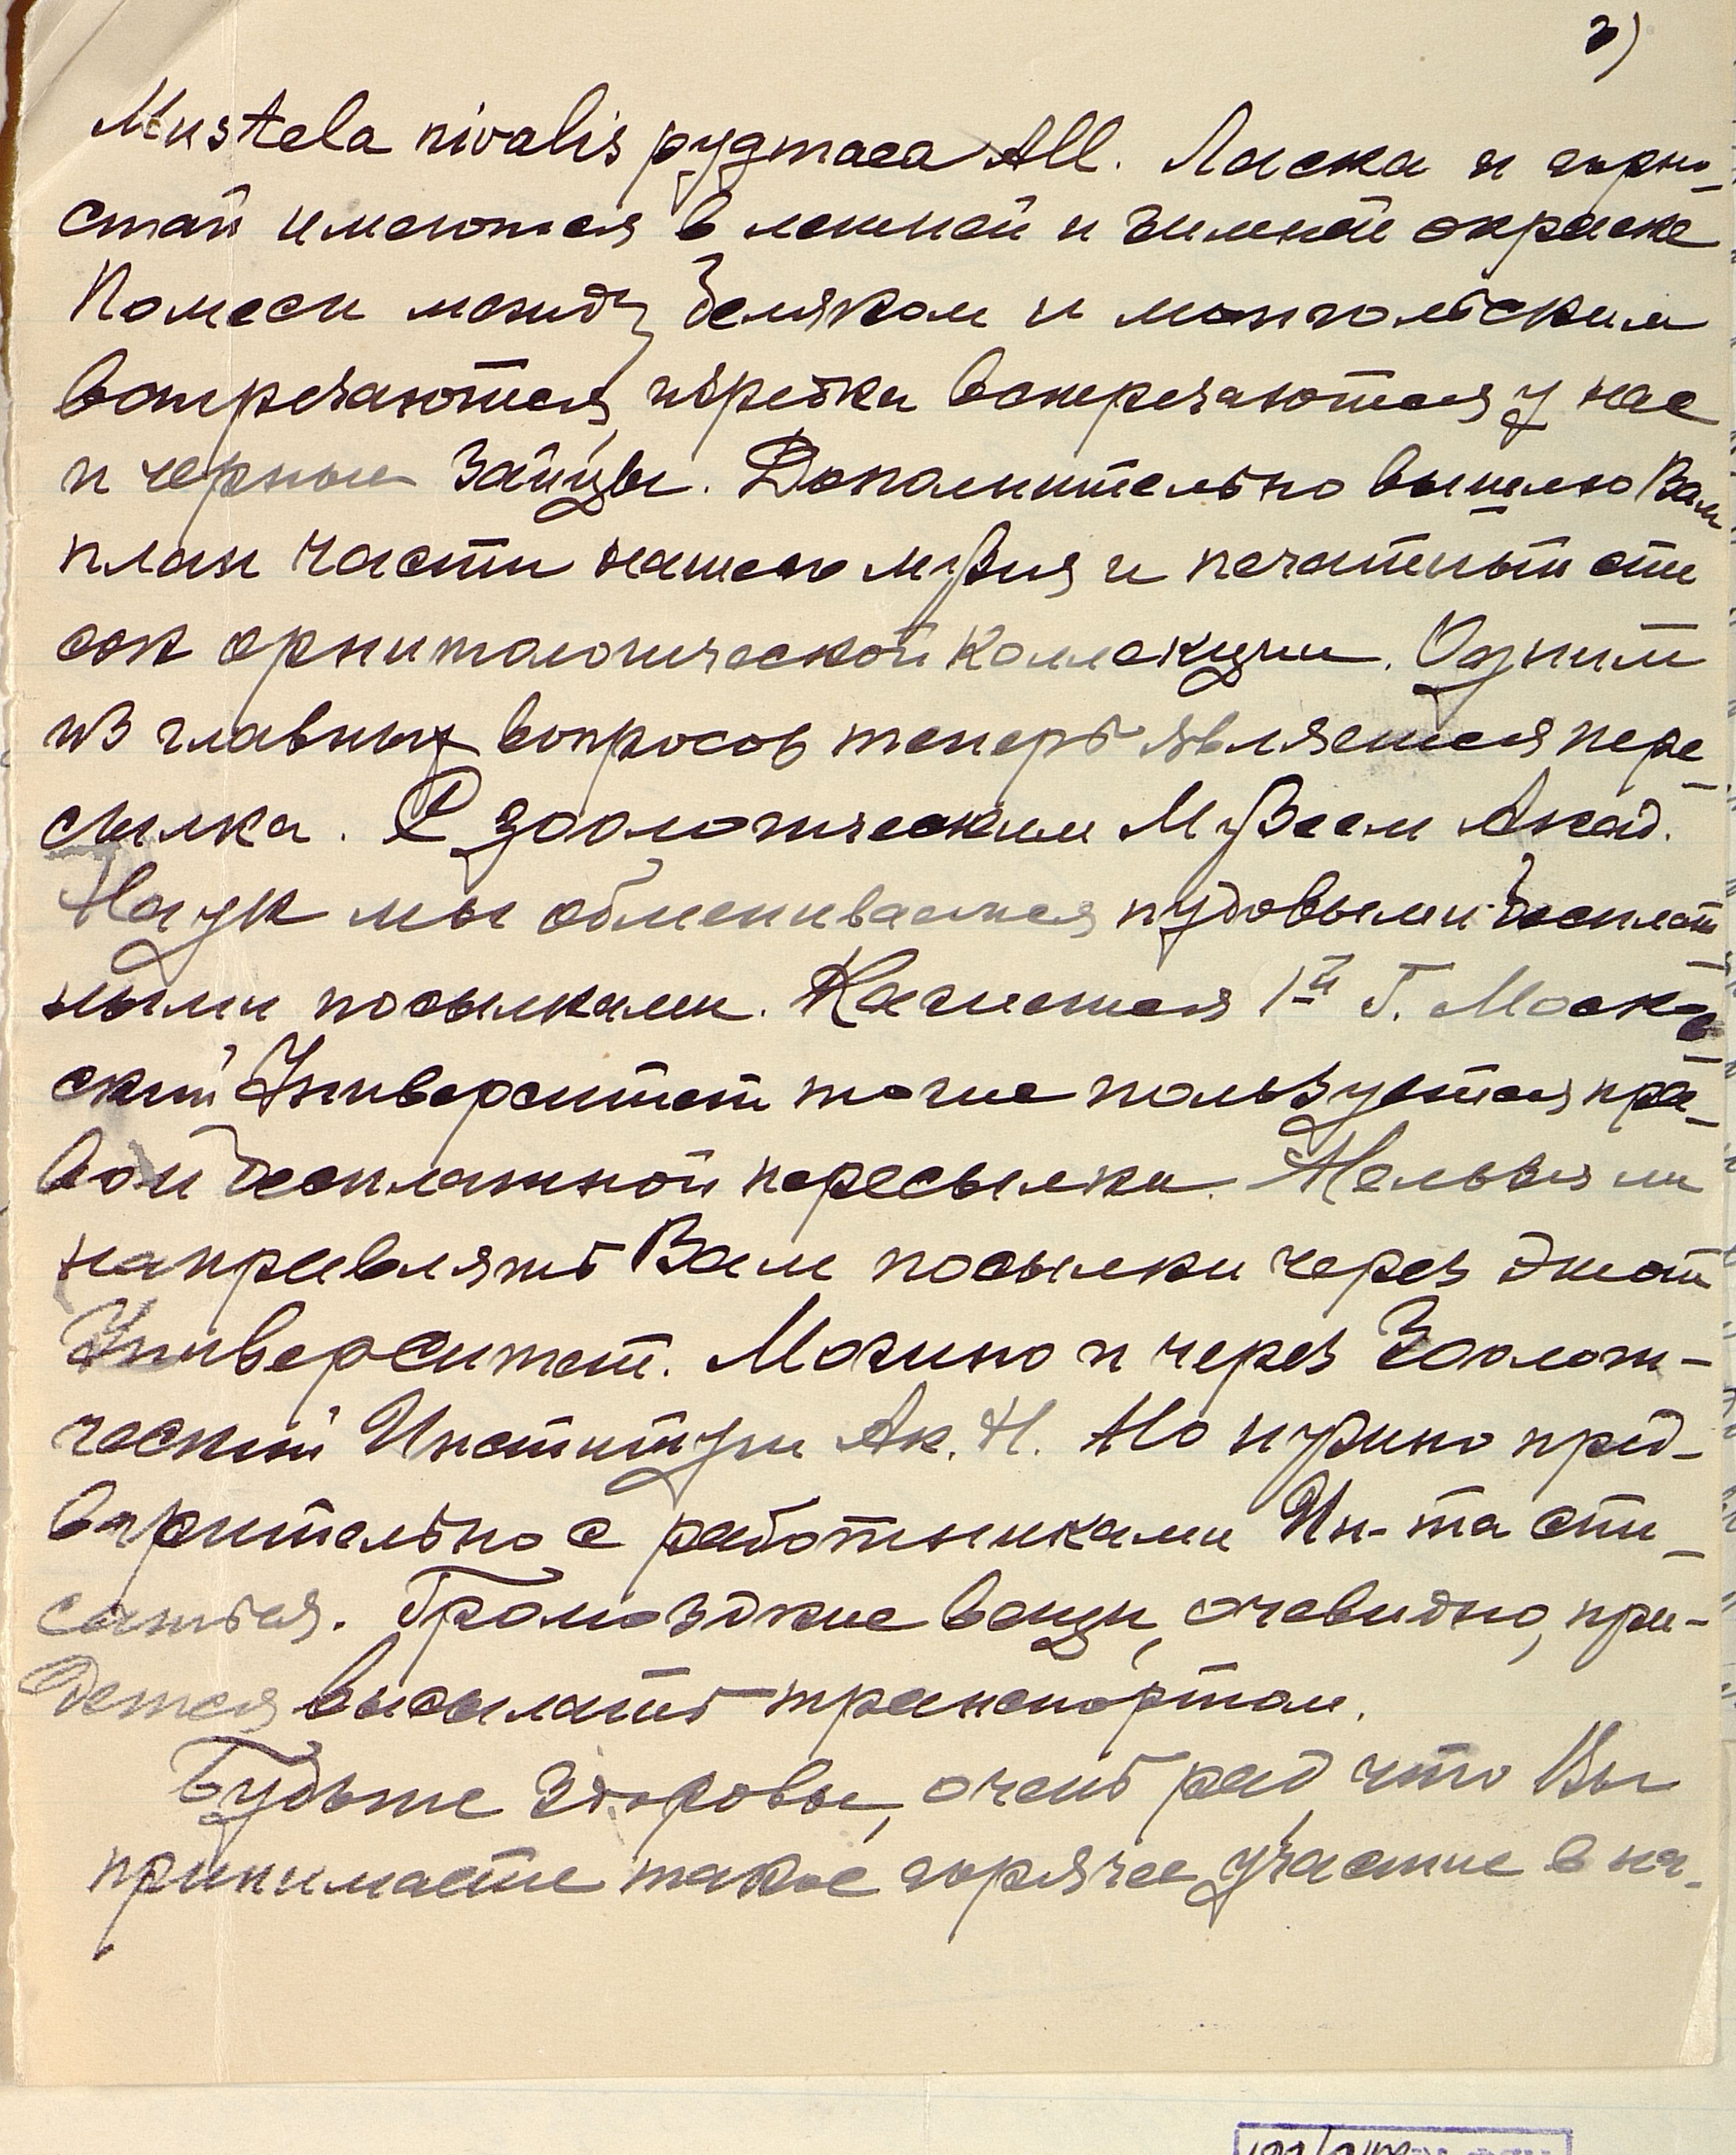 3)
Mustela nivalis pygmaea All. Ласка и горно-
стай имеются в летней и зимней окраске
Помеси между беляком и монгольским
встречаются, изредка встречаются у нас
и черные зайцы. Дополнительно вышлю Вам
план части нашего музея и печатный спи
сок орнитологической коллекции. Одним
из главных вопросов теперь является пере-
сылка. С Зоологическим Музеем Акад.
Наук мы обмениваемся пудовыми бесплат-
ными посылками. Кажется 1й Г. Москов-
ский Университет тоже пользуется пра-
вом бесплатной пересылки. Нельзя ли
направлять Вам посылки через этот
Университет. Можно и через Зоологи-
ческий Институт Ак. Н. Но нужно пред-
варительно с работниками Ин-та спи-
саться. Громоздкие вещи, очевидно, при-
дется высылать транспортом.
Будьте здоровы, очень рад что Вы
принимаете такое горячее участие в на-